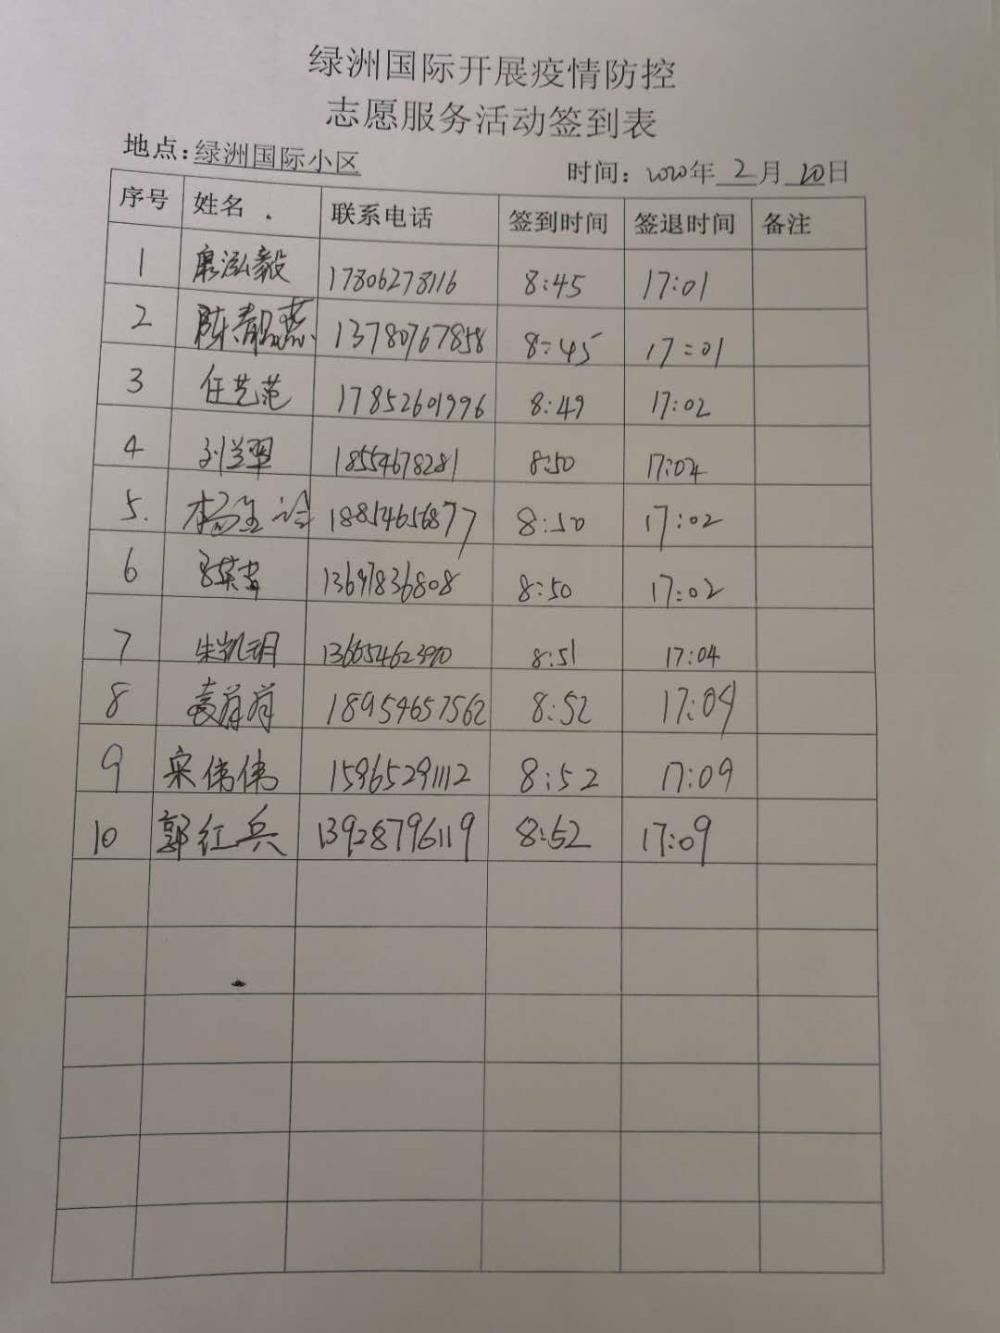 绿洲国际开展疫情防控
志愿服务活动签到表
地点:绿洲国际小区 时间: 2020年 2月 20日
序号 姓名 . 联系电话 签到时间 签退时间 备注
1 泓毅 17806278116 8:45 17:01
2 陈靓燕 13780767858 8:45 17:01
3 任艺范 17852601996 8:49 17:02
4 刘兰翠 18554678281 8:50 17:02
5. 杨 18854656877 8:50 17:02
6 13697836808 8:50 17:02
7 朱凯玥 8:51 17:04
8 袁前前 18954657562 8:52 17:09
9 宋伟伟 15965291112 8:52 17:09
10 郭红兵 13928796119 8:52 17:09